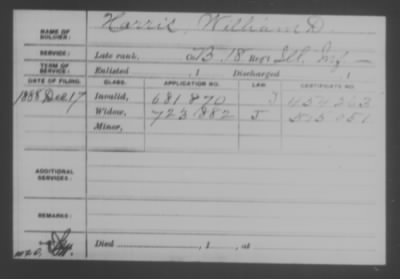 NAME OF SOLDIER: Harris, William D.
SERVICE: Late rank, Co. B, 18 Reg't Ill. Inf
TERM OF SERVICE: Enlisted , 1 Discharged , 1
DATE OF FILING. CLASS. APPLICATION NO. LAW. CERTIFICATE NO.
1888 Dec 17 Invalid, 681 870 J 454 263
Widow, 723 882 J 515 051
Minor,
ADDITIONAL SERVICES:
REMARKS:
Died , 1 , at